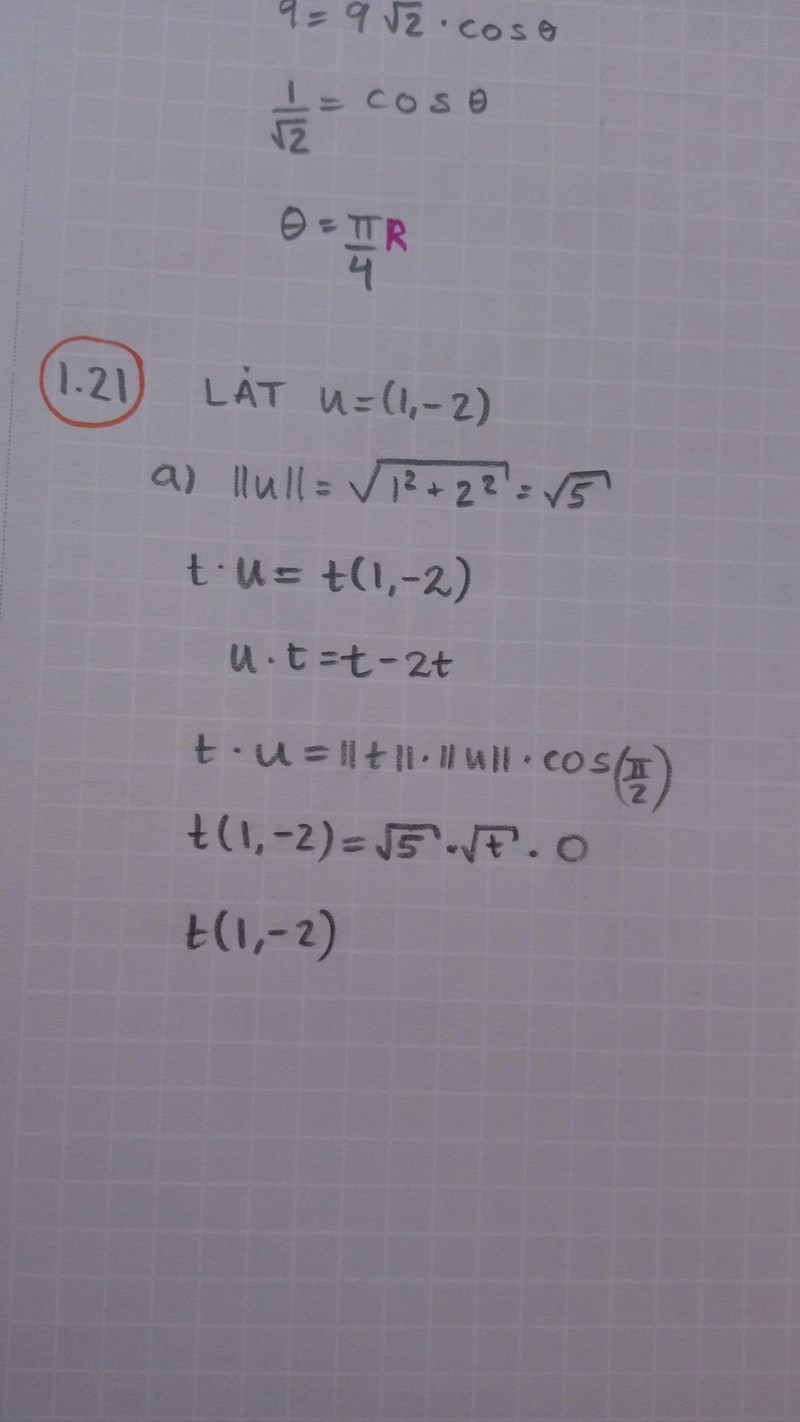 9 = 9 √2 · cos θ
1/√2 = cos θ
θ = π/4 R
1.21 LÅT u = (1, -2)
a) ||u|| = √(1² + 2²) = √5
t · u = t(1, -2)
u · t = t - 2t
t · u = ||t|| · ||u|| · cos(π/2)
t(1, -2) = √5 · √t · 0
t(1, -2)